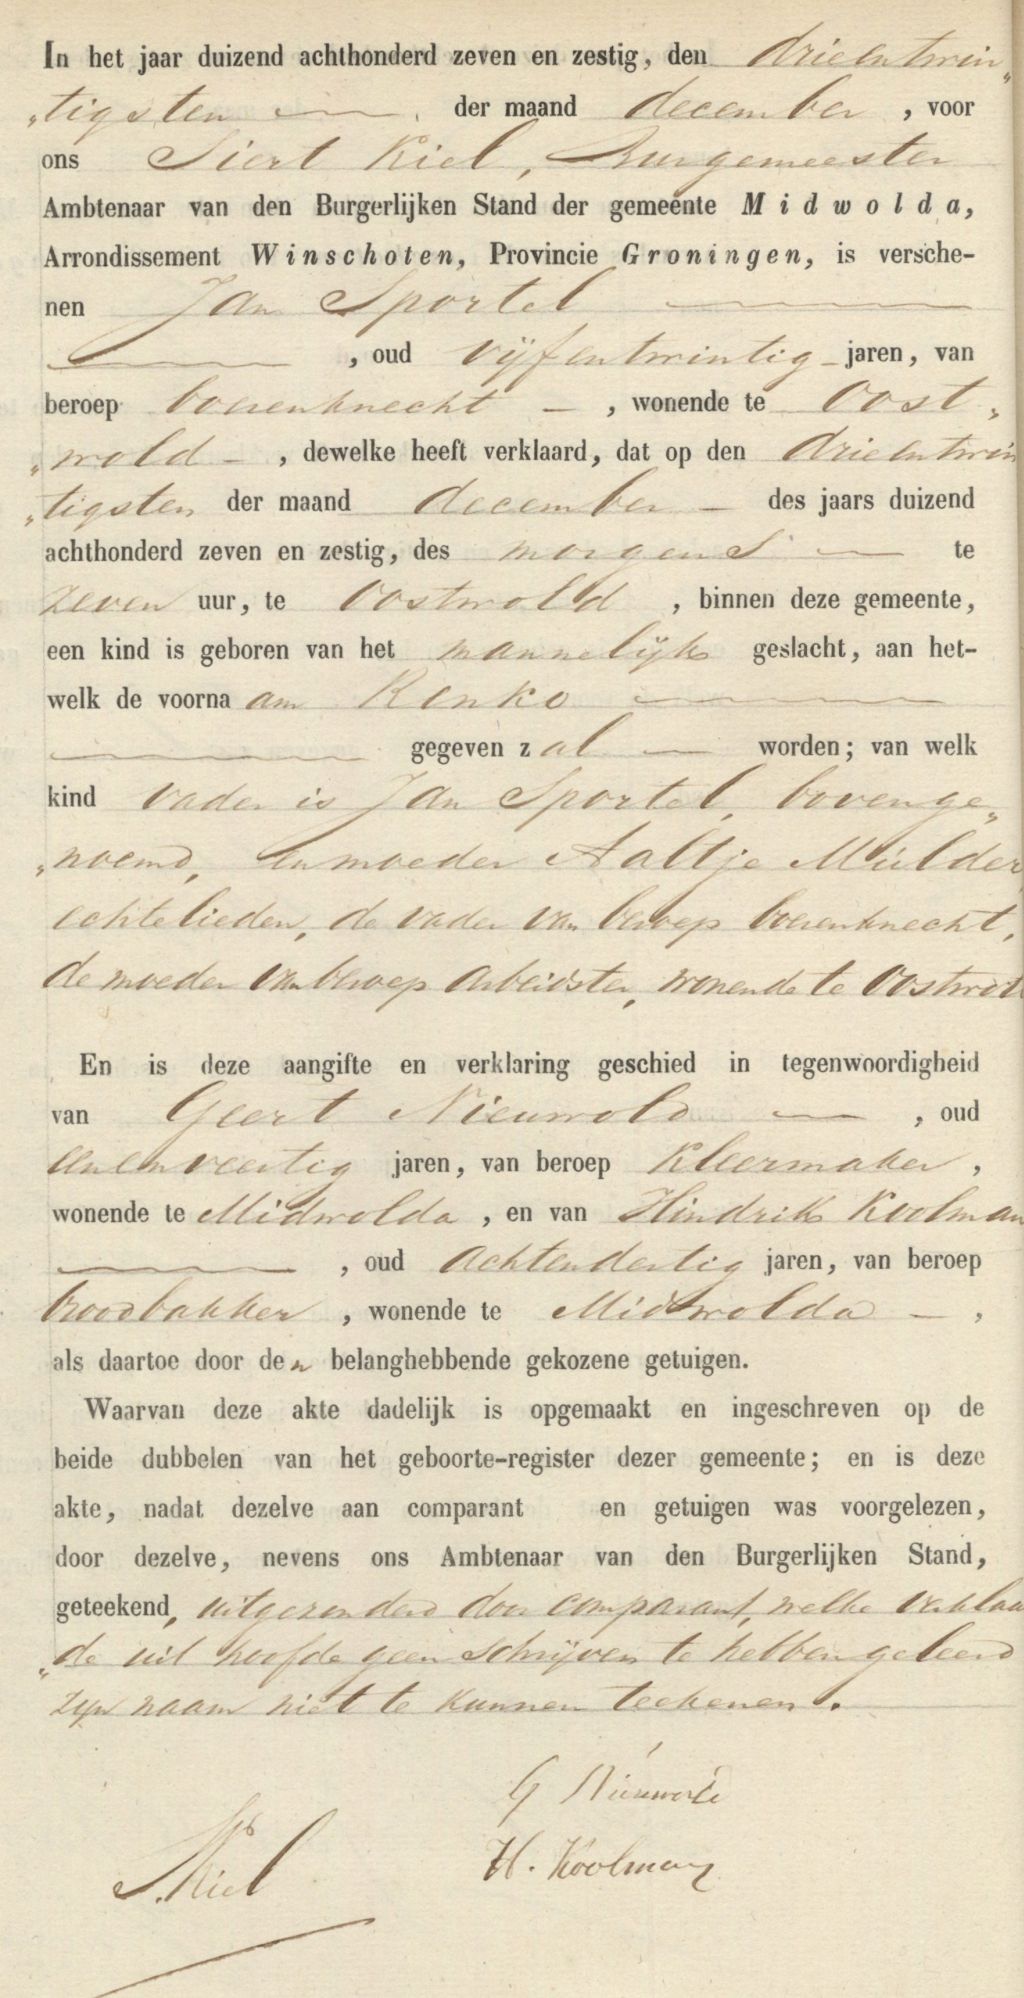 In het jaar duizend achthonderd zeven en zestig, den drieentwin„
„tigsten der maand december, voor
ons Siert Kiel, Burgemeester
Ambtenaar van den Burgerlijken Stand der gemeente Midwolda,
Arrondissement Winschoten, Provincie Groningen, is versche-
nen Jan Sportel
, oud vijfentwintig jaren, van
beroep boerenknecht, wonende te Oost„
„wold, dewelke heeft verklaard, dat op den drieentwin
„tigsten der maand december des jaars duizend
achthonderd zeven en zestig, des morgens te
zeven uur, te Oostwold, binnen deze gemeente,
een kind is geboren van het mannelijk geslacht, aan het-
welk de voornaam Renko
gegeven zal worden; van welk
kind vader is Jan Sportel, bovenge„
„noemd, en moeder Aaltje Mulder,
echtelieden, de vader van beroep boerenknecht,
de moeder van beroep arbeidster, wonende te Oostwold
En is deze aangifte en verklaring geschied in tegenwoordigheid
van Geert Nieuwold, oud
eenenveertig jaren, van beroep kleermaker,
wonende te Midwolda, en van Hindrik Koolman
, oud achtendertig jaren, van beroep
broodbakker, wonende te Midwolda,
als daartoe door den belanghebbende gekozene getuigen.
Waarvan deze akte dadelijk is opgemaakt en ingeschreven op de
beide dubbelen van het geboorte-register dezer gemeente; en is deze
akte, nadat dezelve aan comparant en getuigen was voorgelezen,
door dezelve, nevens ons Ambtenaar van den Burgerlijken Stand,
geteekend, uitgezonderd door comparant, welke verklaar
„de uit hoofde geen schrijven te hebben geleerd
zijn naam niet te kunnen teekenen.
G Nieuwold
H. Koolman
S. Kiel